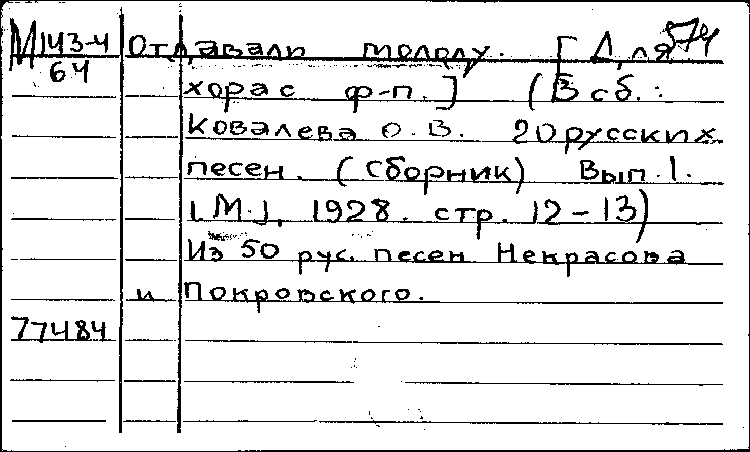 М143-4 Отдавали молоду. [Для 574
64 хора с ф-п.] (В сб.:
Ковалева О.В. 20 русских
песен. (Сборник) Вып. 1.
[М.], 1928. стр. 12-13)
Из 50 рус. песен Некрасова
и Покровского.
77484